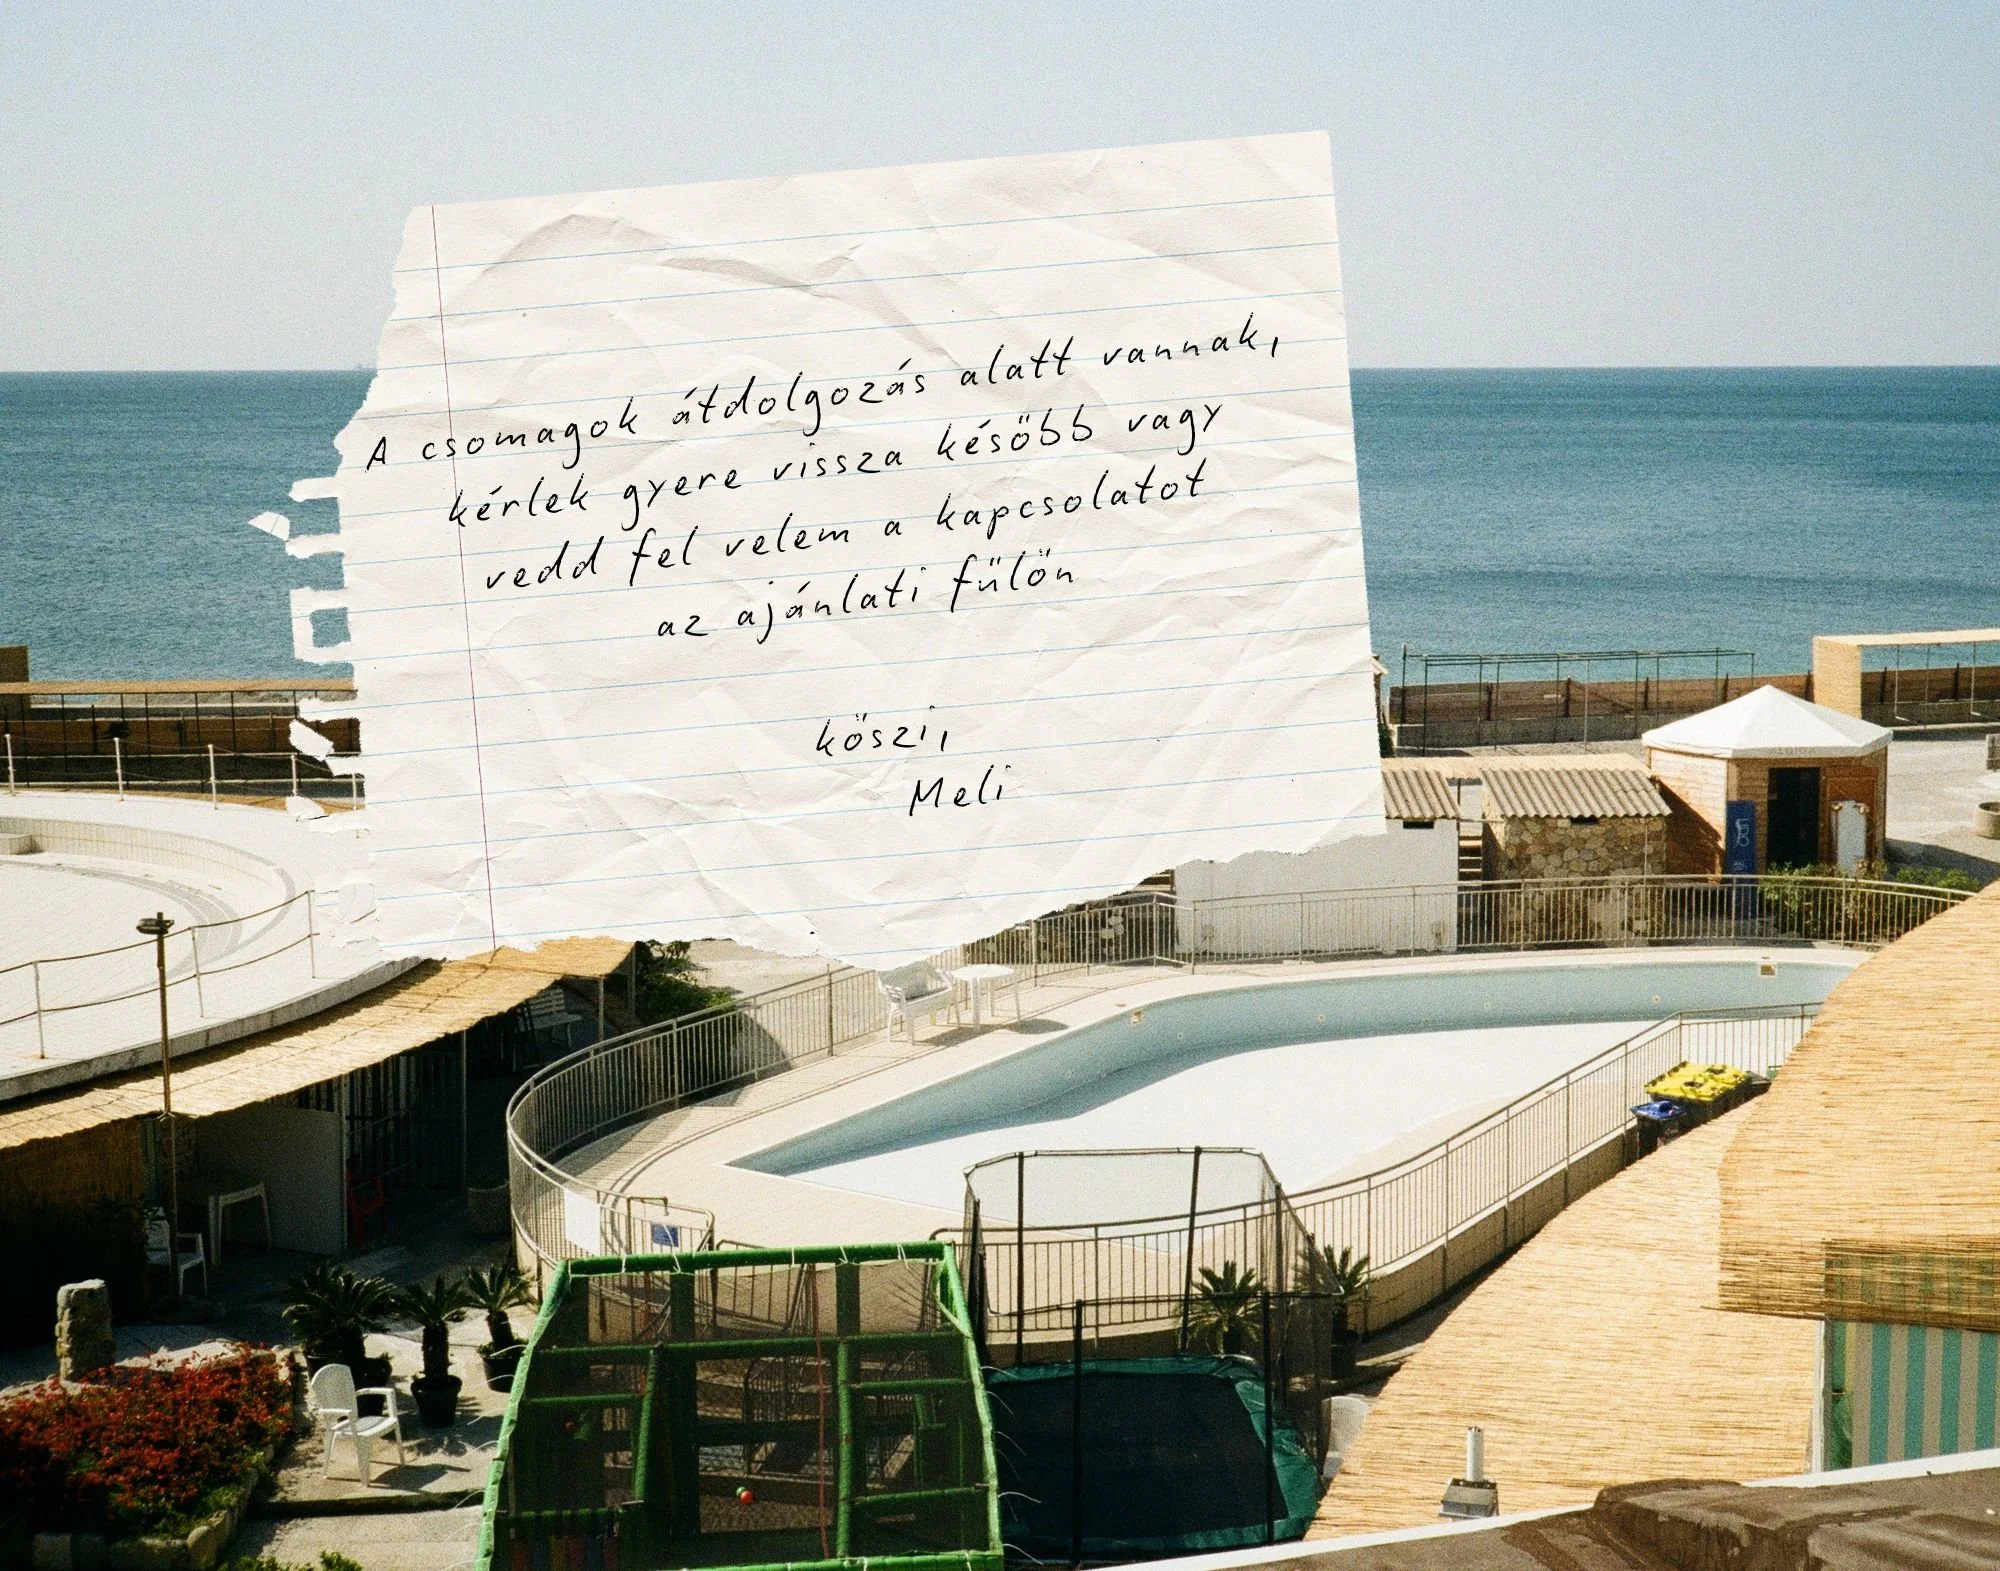 A csomagok átdolgozás alatt vannak,
kérlek gyere vissza később vagy
vedd fel velem a kapcsolatot
az ajánlati fülön
köszi,
Meli